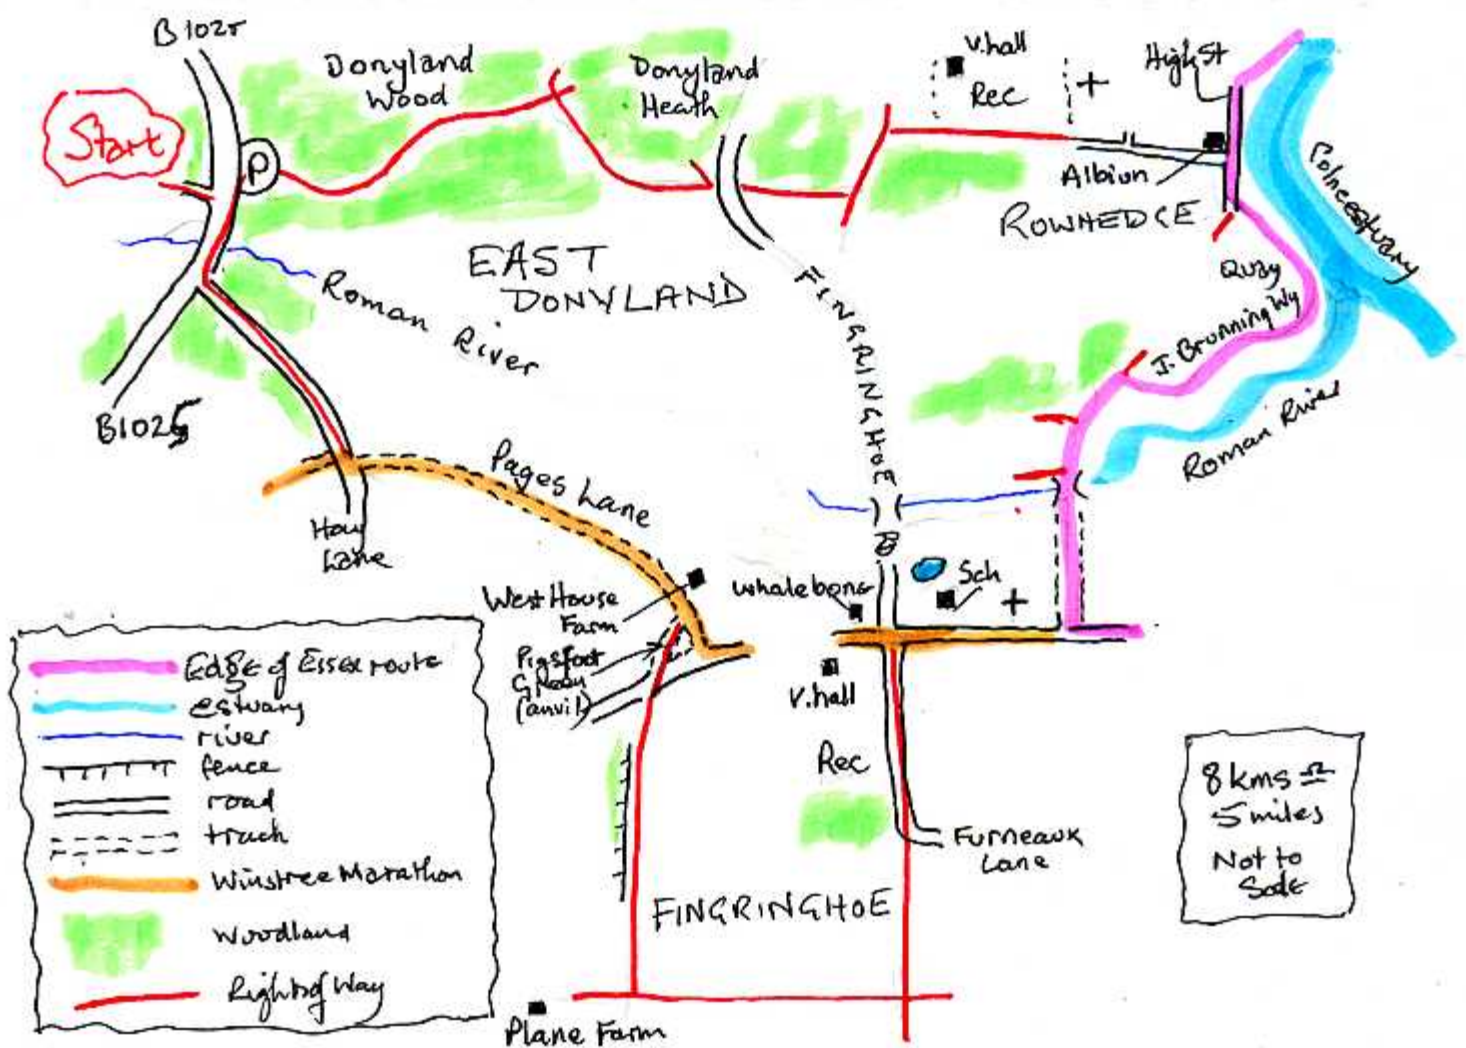 B1025
Start
P
Donyland
Wood
Donyland
Heath
V.hall
Rec
High St
Albion
ROWHEDGE
Colne estuary
Quay
J. Brunning Wy
Roman River
EAST
DONYLAND
Roman
River
FINGRINGHOE
B1025
Pages Lane
Hay
Lane
West House
Farm
Pigsfoot
Green
(anvil)
Whalebone
Sch
V.hall
Rec
Furneaux
Lane
FINGRINGHOE
Plane Farm
Edge of Essex route
estuary
river
fence
road
track
Winstree Marathon
Woodland
Right of Way
8 kms ≏
5 miles
Not to
Scale